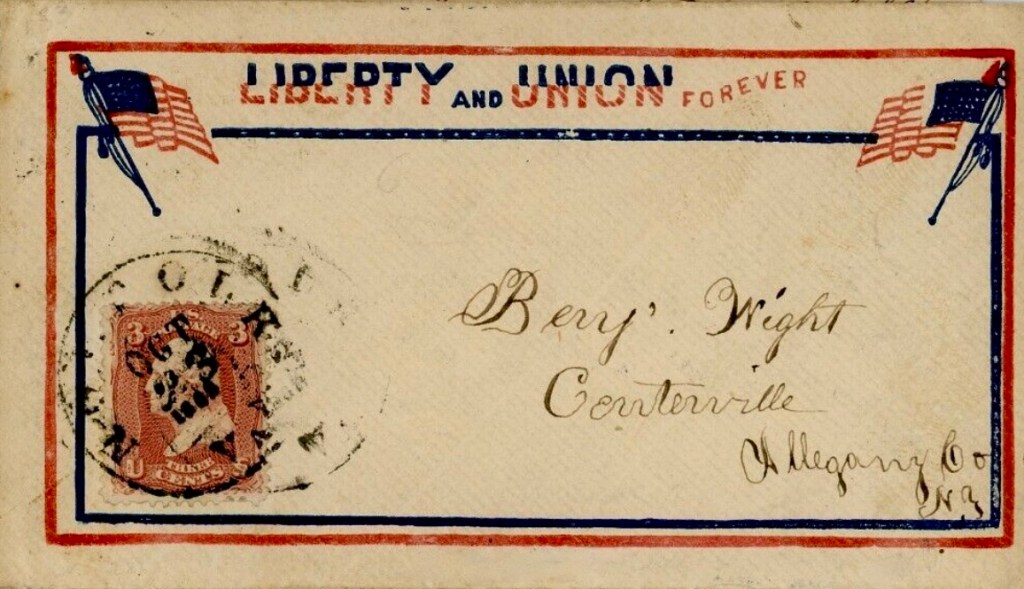 LIBERTY AND UNION FOREVER
Benj'. Wight
Centerville
Allegany Co
N.Y
NORFOLK VA
OCT
3 3
U S
THREE
CENTS